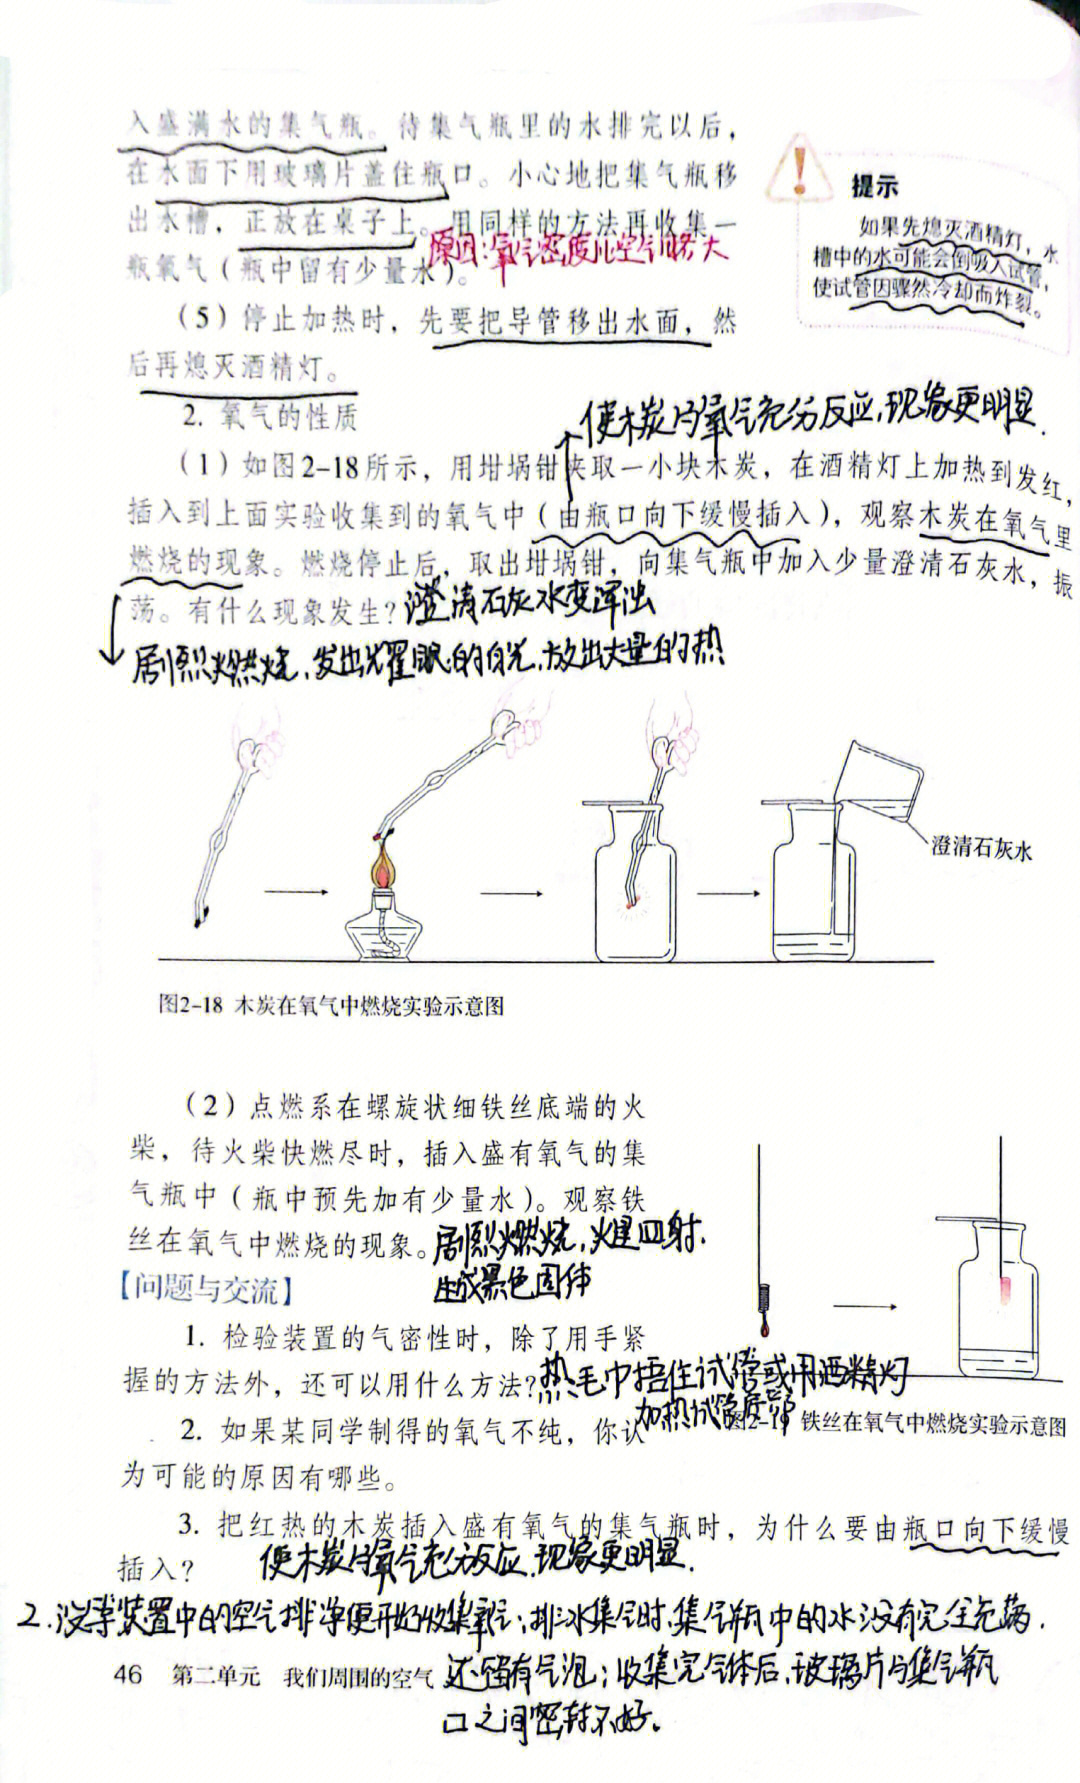 入盛满水的集气瓶。待集气瓶里的水排完以后，
在水面下用玻璃片盖住瓶口。小心地把集气瓶移
出水槽，正放在桌子上。用同样的方法再收集一
原因：氧气密度比空气略大
瓶氧气（瓶中留有少量水）。
提示
如果先熄灭酒精灯，水
槽中的水可能会倒吸入试管，
使试管因骤然冷却而炸裂。
（5）停止加热时，先要把导管移出水面，然
后再熄灭酒精灯。
2. 氧气的性质
使木炭与氧气充分反应，现象更明显.
（1）如图2-18所示，用坩埚钳夹取一小块木炭，在酒精灯上加热到发红，
插入到上面实验收集到的氧气中（由瓶口向下缓慢插入），观察木炭在氧气里
燃烧的现象。燃烧停止后，取出坩埚钳，向集气瓶中加入少量澄清石灰水，振
荡。有什么现象发生？澄清石灰水变浑浊
剧烈燃烧，发出耀眼的白光，放出大量的热
澄清石灰水
图2-18 木炭在氧气中燃烧实验示意图
（2）点燃系在螺旋状细铁丝底端的火
柴，待火柴快燃尽时，插入盛有氧气的集
气瓶中（瓶中预先加有少量水）。观察铁
丝在氧气中燃烧的现象。剧烈燃烧，火星四射.
生成黑色固体
【问题与交流】
1. 检验装置的气密性时，除了用手紧
握的方法外，还可以用什么方法？热毛巾捂住试管或用酒精灯
加热试管底部
图2-19 铁丝在氧气中燃烧实验示意图
2. 如果某同学制得的氧气不纯，你认
为可能的原因有哪些。
3. 把红热的木炭插入盛有氧气的集气瓶时，为什么要由瓶口向下缓慢
插入？ 使木炭与氧气充分反应，现象更明显.
2.没等装置中的空气排净便开始收集氧气；排水集气时，集气瓶中的水没有完全充满.
46 第二单元 我们周围的空气 还留有气泡；收集完气体后，玻璃片与集气瓶
口之间密封不好。